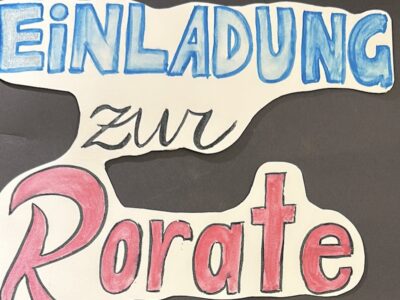 EiNLADUNG
zur
Rorate